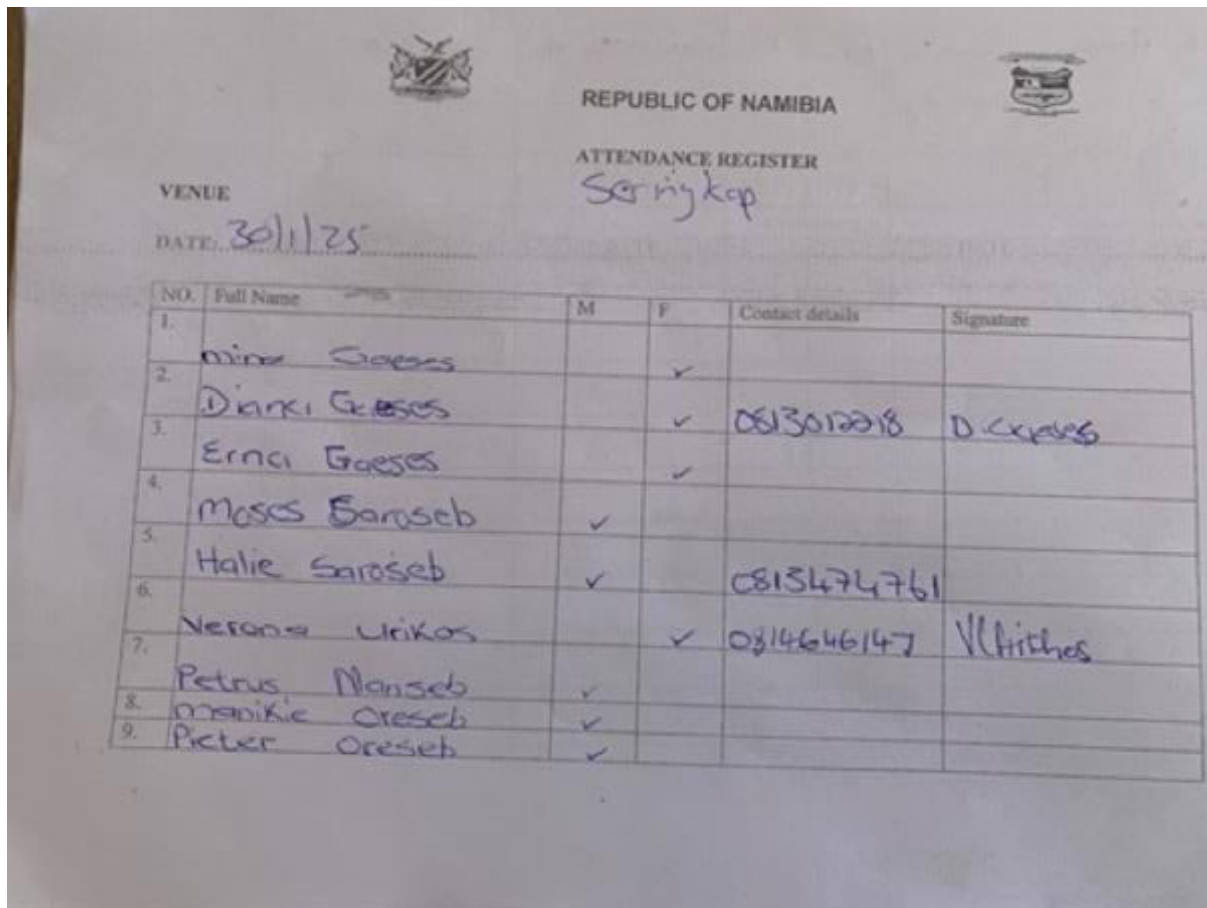 REPUBLIC OF NAMIBIA
ATTENDANCE REGISTER
VENUE Seringkop
DATE: 30/1/25
NO. Full Name M F Contact details Signature
1. mina Gaeses ✓
2. Diana Gaeses ✓ 0813012218
3. Erna Gaeses ✓
4. Moses Saroseb ✓
5. Halie Saroseb ✓ 0813474761
6. Verona Urikos ✓ 0814646147
7. Petrus Nanseb ✓
8. manikie Oreseb ✓
9. Pieter Oreseb ✓